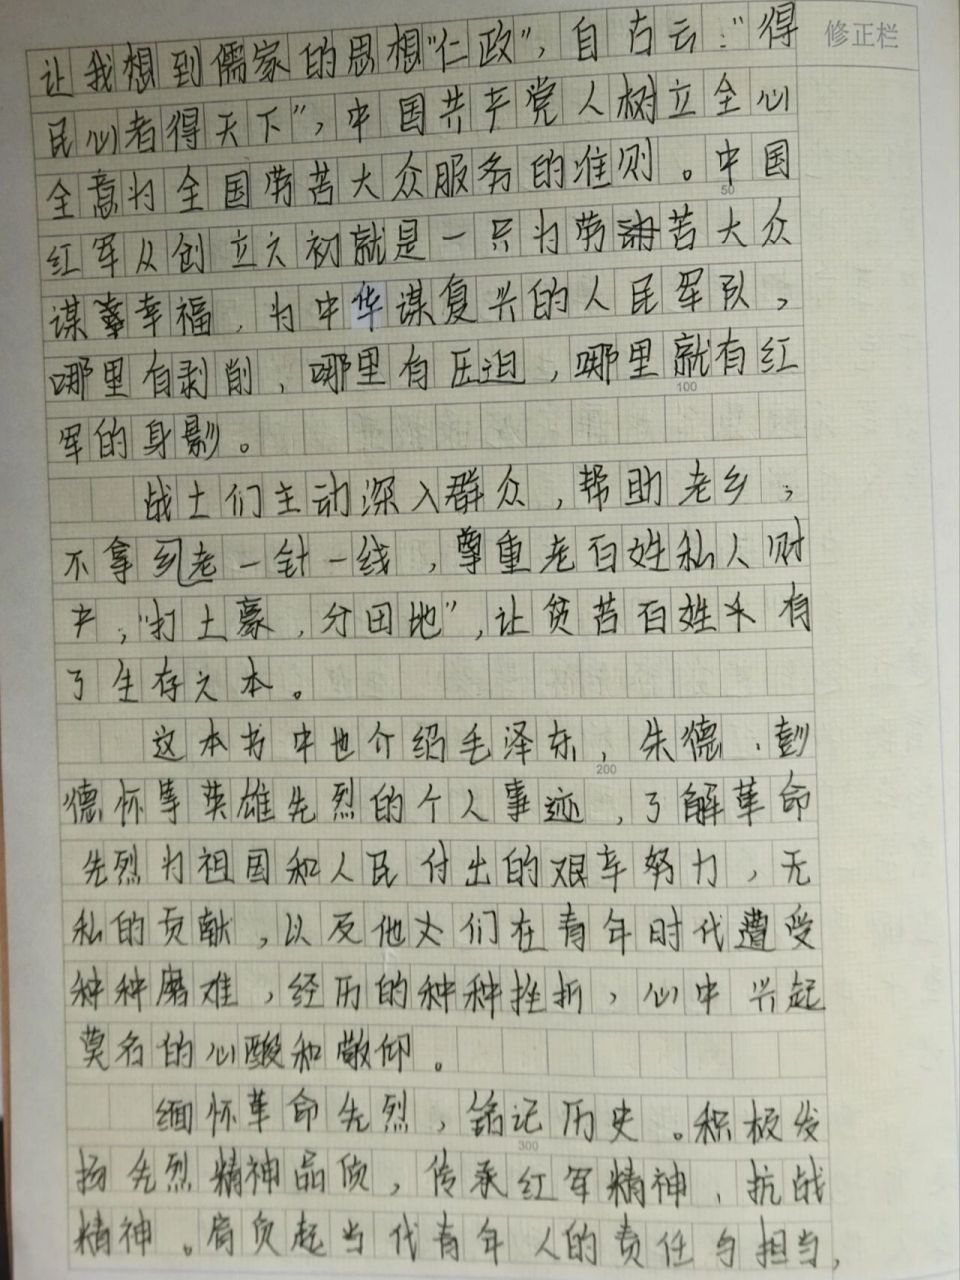 修正栏
让我想到儒家的思想“仁政”，自古云：“得
民心者得天下”，中国共产党人树立全心
全意为全国劳苦大众服务的准则。中国
50
红军从创立之初就是一只为劳苦大众
谋幸福，为中华谋复兴的人民军队，
哪里有剥削，哪里有压迫，哪里就有红
100
军的身影。
战士们主动深入群众，帮助老乡，
不拿到老一针一线，尊重老百姓私人财
产，“打土豪，分田地”，让贫苦百姓手有
了生存之本。
这本书中也介绍毛泽东，朱德、彭
200
德怀等英雄先烈的个人事迹，了解革命
先烈为祖国和人民付出的艰辛努力，无
私的贡献，以及他们在青年时代遭受
种种磨难，经历的种种挫折，心中兴起
莫名的心酸和敬仰。
缅怀革命先烈，铭记历史。积极发
300
扬先烈精神品质，传承红军精神、抗战
精神。肩负起当代青年人的责任与担当，